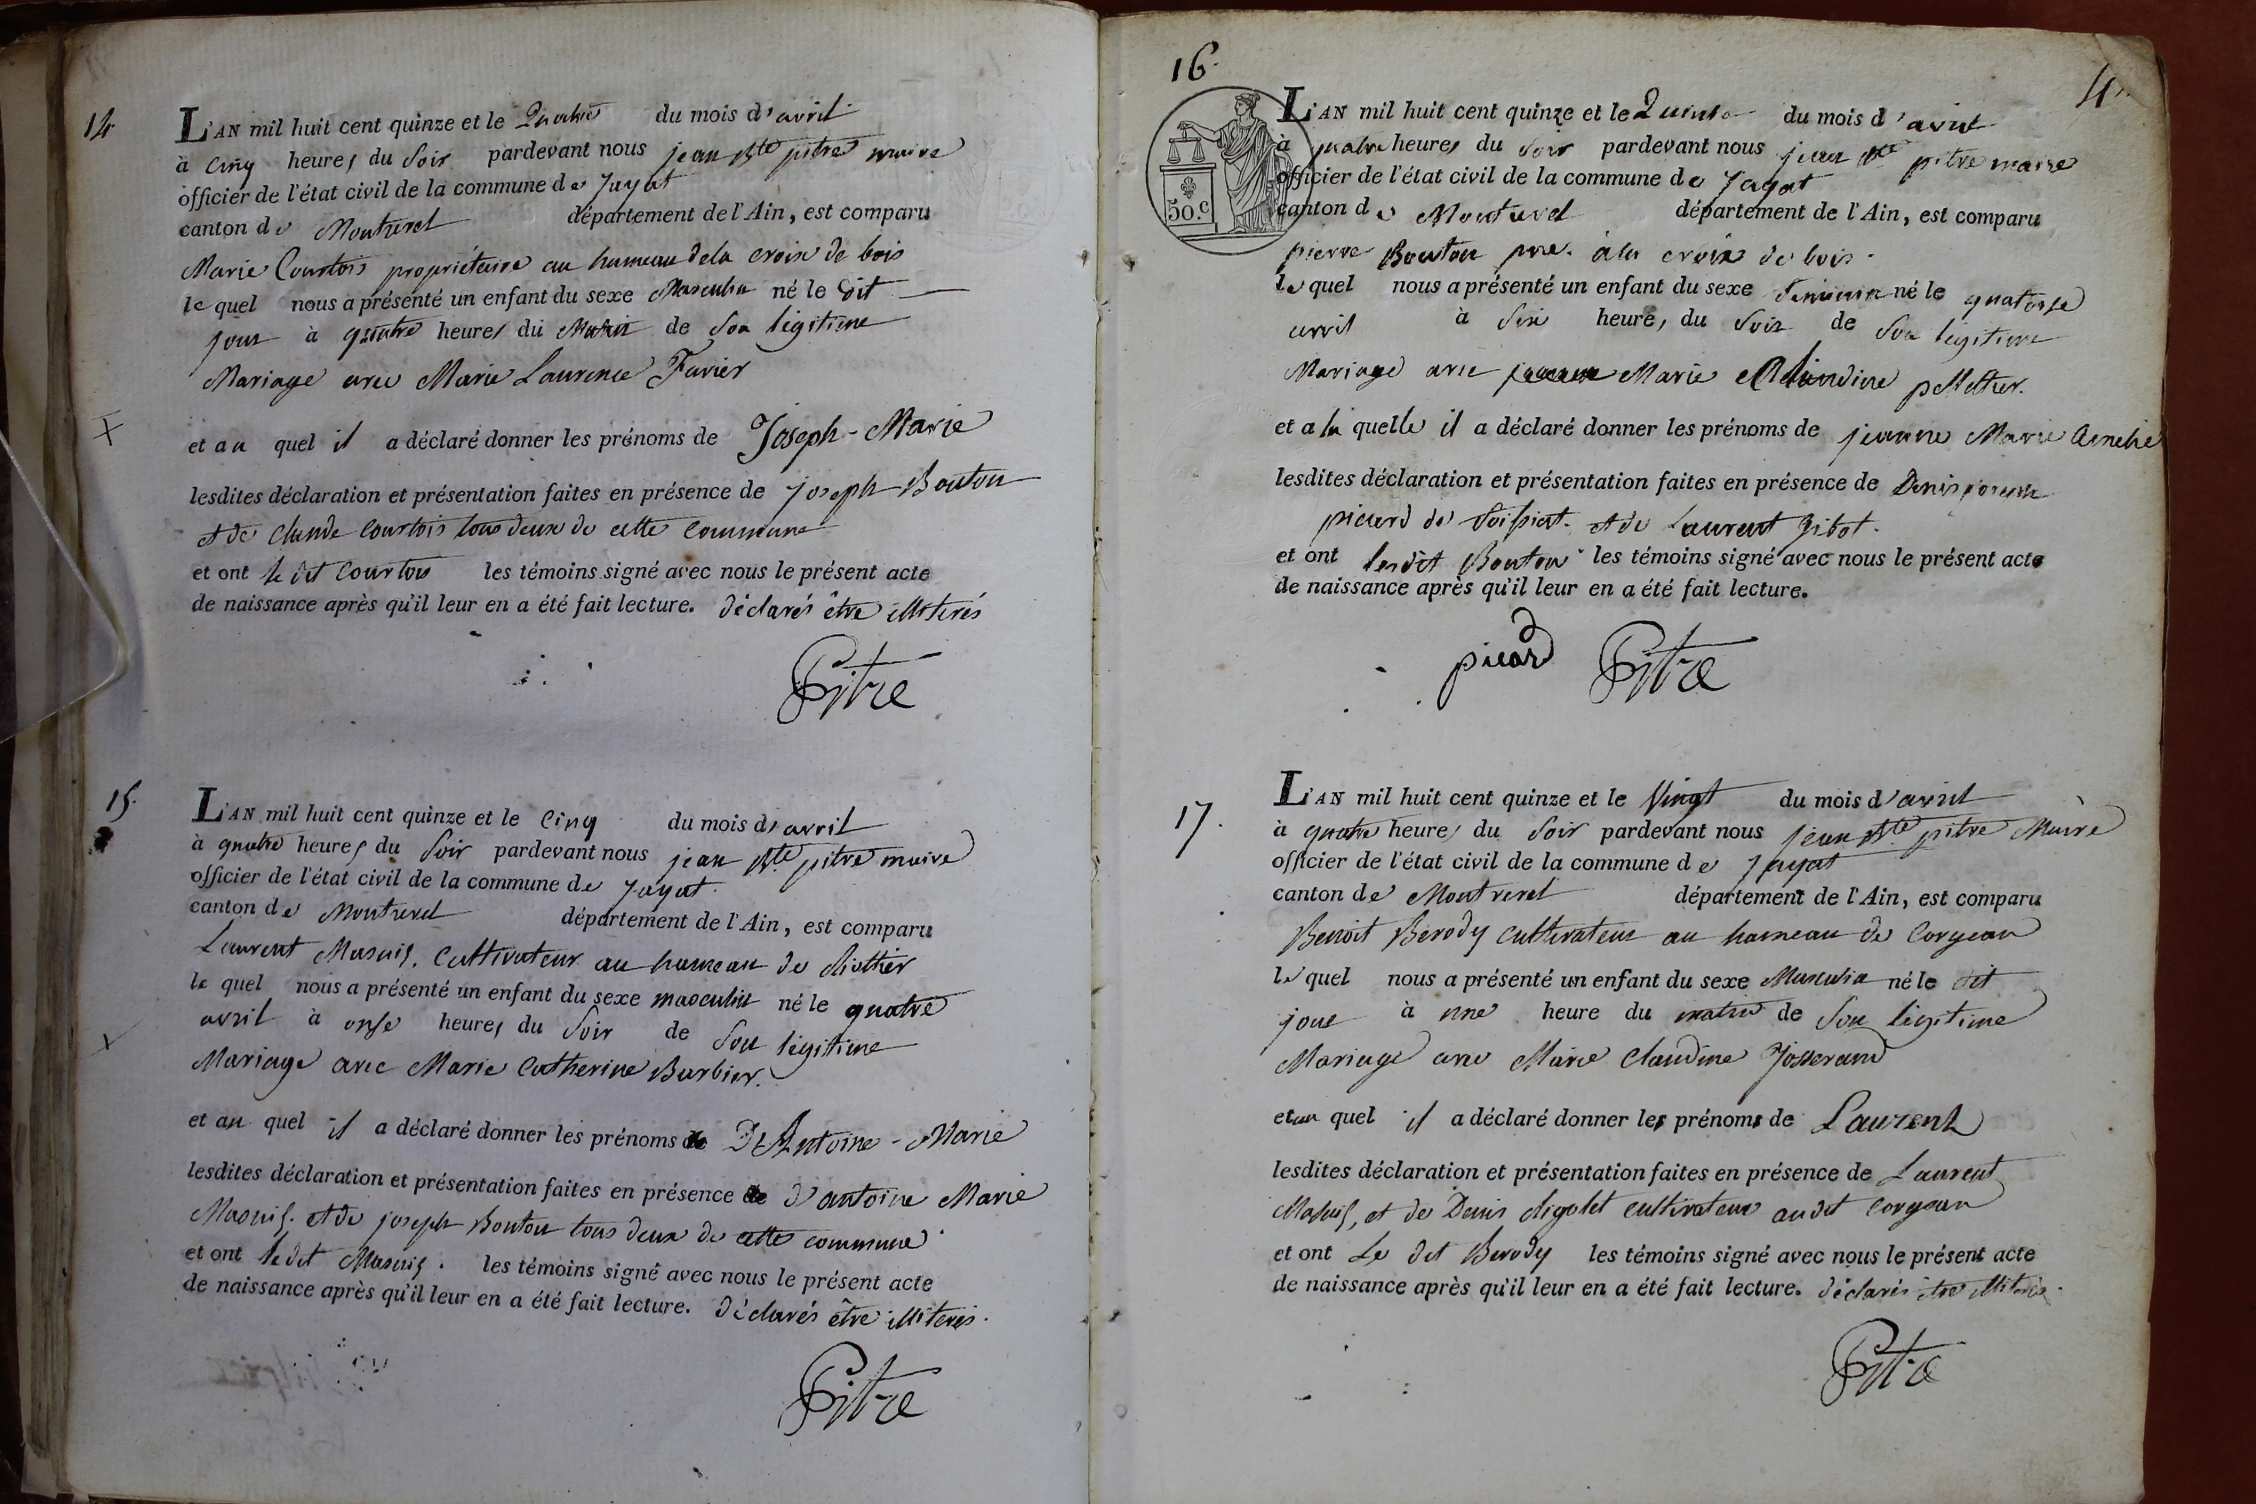 14.
L'AN mil huit cent quinze et le Quatre du mois d'avril
à cinq heures du soir pardevant nous jean Bte pitre maire
officier de l'état civil de la commune de Jayat
canton de Montrevel département de l'Ain, est comparu
Marie Courtois propriétaire au hameau de la croix de bois
le quel nous a présenté un enfant du sexe Masculin né le dit
jour à quatre heures du Matin de son légitime
Mariage avec Marie Laurence Favier
et au quel il a déclaré donner les prénoms de Joseph-Marie
lesdites déclaration et présentation faites en présence de joseph Bouton
et de Claude Courtois tous deux de cette commune
et ont le dit Courtois les témoins signé avec nous le présent acte
de naissance après qu'il leur en a été fait lecture. déclarés être illiterés
Pitre
15.
L'AN mil huit cent quinze et le Cinq du mois d'avril
à quatre heures du soir pardevant nous jean Bte pitre maire
officier de l'état civil de la commune de Jayat.
canton de Montrevel département de l'Ain, est comparu
Laurent Masuis. Cultivateur au hameau de
le quel nous a présenté un enfant du sexe masculin né le quatre
avril à onse heures du soir de son légitime
Mariage avec Marie Catherine Barbier.
et au quel il a déclaré donner les prénoms D'Antoine-Marie
lesdites déclaration et présentation faites en présence d'antoine Marie
Masuis. et de joseph Bouton tous deux de cette commune
et ont le dit Masuis. les témoins signé avec nous le présent acte
de naissance après qu'il leur en a été fait lecture. déclarés être illiterés.
Pitre
16.
50.c
L'AN mil huit cent quinze et le Quinse du mois d'avril
à quatre heures du soir pardevant nous jean Bte pitre maire
officier de l'état civil de la commune de Jayat
canton de Montrevel département de l'Ain, est comparu
pierre Bouton pre. à la croix de bois.
le quel nous a présenté un enfant du sexe feminin né le quatorse
avril à six heures du soir de son légitime
Mariage avec Marie Claudine pelletier.
et a la quelle il a déclaré donner les prénoms de jeanne Marie Amelie
lesdites déclaration et présentation faites en présence de Denis joseph
picard de foissiat. et de Laurent
et ont ledit Bouton les témoins signé avec nous le présent acte
de naissance après qu'il leur en a été fait lecture.
picard Pitre
17.
L'AN mil huit cent quinze et le Vingt du mois d'avril
à quatre heures du soir pardevant nous jean Bte pitre Maire
officier de l'état civil de la commune de Jayat
canton de Montrevel département de l'Ain, est comparu
Benoit Berody cultivateur au hameau de Corgean
le quel nous a présenté un enfant du sexe Masculin né le dit
jour à une heure du matin de son légitime
Mariage avec Marie Claudine Josserand
et au quel il a déclaré donner les prénoms de Laurent
lesdites déclaration et présentation faites en présence de Laurent
Masuis, et de Denis cultivateur audit Corgean
et ont Le dit Berody les témoins signé avec nous le présent acte
de naissance après qu'il leur en a été fait lecture. déclarés être illiterés.
Pitre